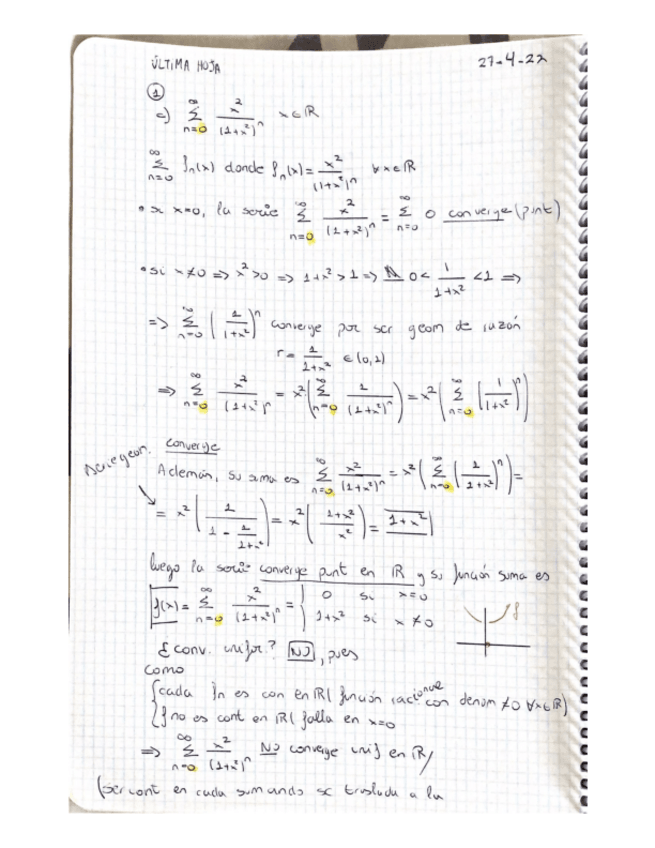 ÚLTIMA HOJA 27-4-22
①
c) ∞∑n=0 x²/(1+x²)ⁿ x∈ℝ
∞∑n=0 fₙ(x) donde fₙ(x) = x²/(1+x²)ⁿ ∀x∈ℝ
• si x=0, la serie ∞∑n=0 x²/(1+x²)ⁿ = ∞∑n=0 0 converge (punt)
• si x≠0 => x²>0 => 1+x²>1 => 0 < 1/(1+x²) < 1 =>
=> ∞∑n=0 (1/(1+x²))ⁿ converge por ser geom de razón
r = 1/(1+x²) ∈ (0,1)
=> ∞∑n=0 x²/(1+x²)ⁿ = x² (∞∑n=0 1/(1+x²)ⁿ) = x² (∞∑n=0 (1/(1+x²))ⁿ)
converge
serie geom.
Además, su suma es ∞∑n=0 x²/(1+x²)ⁿ = x² (∞∑n=0 (1/(1+x²))ⁿ) =
= x² (1/(1 - 1/(1+x²))) = x² ((1+x²)/x²) = 1+x²
luego la serie converge punt en ℝ y su función suma es
f(x) = ∞∑n=0 x²/(1+x²)ⁿ = { 0 si x=0
1+x² si x≠0
f
¿conv. unifor.? NO, pues
como
{ cada fn es con en ℝ (función racional con denom ≠0 ∀x∈ℝ)
f no es cont en ℝ (falla en x=0
=> ∞∑n=0 x²/(1+x²)ⁿ NO converge unif en ℝ/
(ser cont en cada sumando se traslada a la